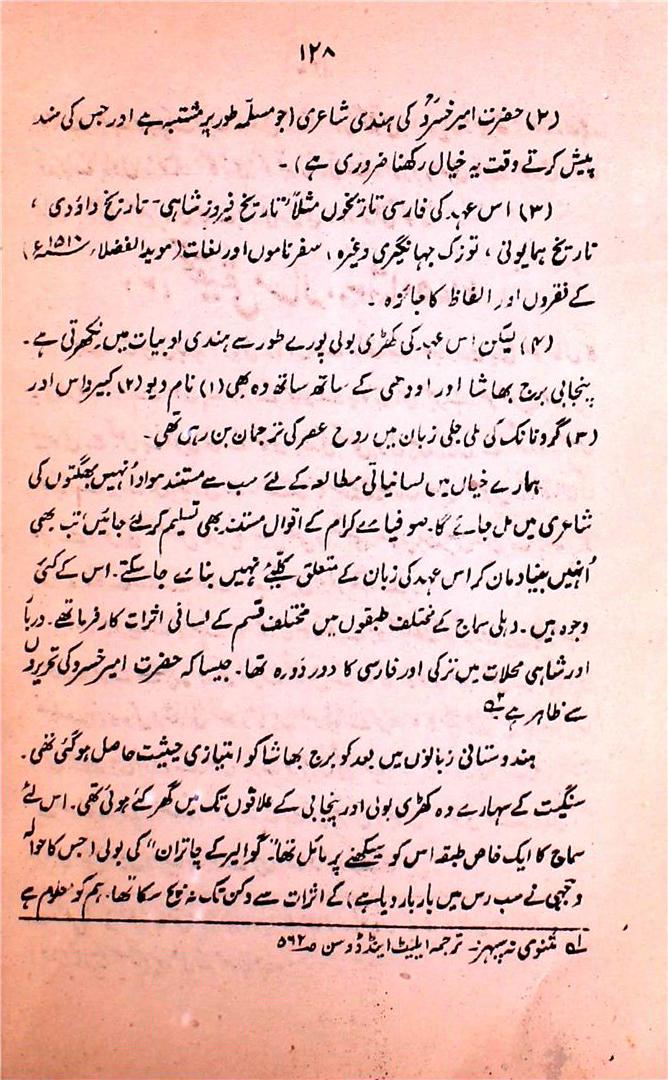 ۱۲۸
(۲) حضرت امیر خسروؒ کی ہندی شاعری (جو مسلّمہ طور پر مشتبہ ہے اور جس کی سند
پیش کرتے وقت یہ خیال رکھنا ضروری ہے)۔
(۳) اس عہد کی فارسی تاریخوں مثلاً "تاریخ فیروز شاہی- تاریخ داؤدی،
تاریخ ہمایونی، توزک جہانگیری وغیرہ، سفر ناموں اور لغات (موید الفضلاء ۱۵۱۰ء)
کے فقروں اور الفاظ کا جائزہ۔
(۴) لیکن اس عہد کی کھڑی بولی پورے طور سے ہندی ادبیات میں نکھرتی ہے۔
پنجابی برج بھاشا اور اودھی کے ساتھ ساتھ وہ بھی (۱) نام دیو (۲) کبیر داس اور
(۳) گرو نانک کی ملی جلی زبان میں روح عصر کی ترجمان بن رہی تھی۔
ہمارے خیال میں لسانیاتی مطالعہ کے لئے سب سے مستند مواد اُنہیں بھگتوں کی
شاعری میں مل جائے گا۔ صوفیائے کرام کے اقوال مستند بھی تسلیم کر لئے جائیں تب بھی
اُنہیں بنیاد مان کر اس عہد کی زبان کے متعلق کلّیے نہیں بنائے جا سکتے۔ اس کے کئی
وجوہ ہیں۔ دہلی سماج کے مختلف طبقوں میں مختلف قسم کے لسانی اثرات کار فرما تھے۔ دربار
اور شاہی محلات میں ترکی اور فارسی کا دور دورہ تھا۔ جیسا کہ حضرت امیر خسرو کی تحریروں
سے ظاہر ہے
ہندوستانی زبانوں میں بعد کو برج بھاشا کو امتیازی حیثیت حاصل ہو گئی تھی۔
سنگیت کے سہارے وہ کھڑی بولی اور پنجابی کے علاقوں تک میں گھر کئے ہوئی تھی۔ اس لئے
سماج کا ایک خاص طبقہ اس کو سیکھنے پر مائل تھا۔ "گوالیر کے چاتراں" کی بولی (جس کا حوالہ
وجہی نے سب رس میں بار بار دیا ہے) کے اثرات سے دکن تک نہ بچ سکا تھا۔ ہم کو معلوم ہے
لہ مثنوی نہ سپہر۔ ترجمہ ایلیٹ اینڈ ڈوسن صہ ۵۶۲